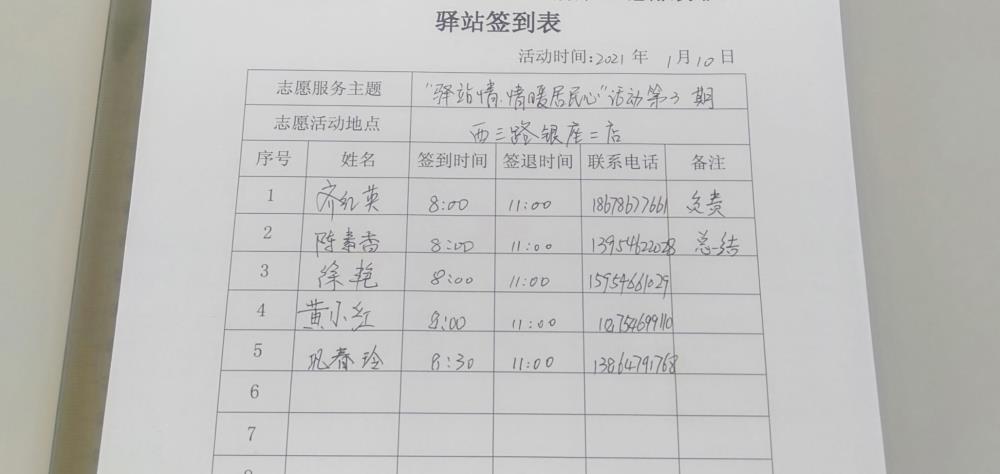 驿站签到表
活动时间:2021年 1月10日
志愿服务主题 "驿站情.情暖居民心"活动第3期
志愿活动地点 西三路银座二店
序号 姓名 签到时间 签退时间 联系电话 备注
1 齐红英 8:00 11:00 18678677661 负责
2 陈素香 8:00 11:00 13954622028 总结
3 徐艳 8:00 11:00 15954661029
4 黄小红 8:00 11:00
5 巩春玲 8:30 11:00 13864791768
6
7